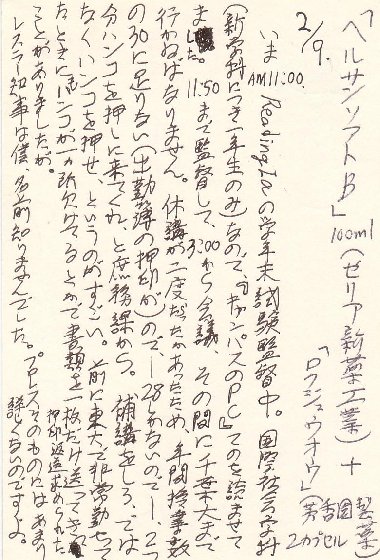 「ヘルサンソフトB」100ml(ゼリア新薬工業)+
「ロクジュウオウ」(芳香園製薬)2カプセル
2/9. AM11:00.
いま Reading Iaの学年末試験監督中。国際社会学科
(新学科につき一年生のみ)なので、『キャンパスのPC』てのを読ませて
ました。11:50まで監督して、3:00から会議、その間に千葉大まで
行かねばなりません。休講が二度だったかあったため、年間授業数
の30に足りない(出勤簿の押印が)ので、―28しかないので―、2つ
分ハンコを押しに来てくれ、と庶務課から。補講をしろ、では
なくハンコを押せ、というのがすごい。前に東大で非常勤やって
たときにハンコが一カ所欠けてるとかで書類を一枚だけ送ってきて
押印返送求められた
ことがありましたが。
プロレスそのものにはあまり
詳しくないのですよ。
レスラー知事は僕、名前知りませんでした。